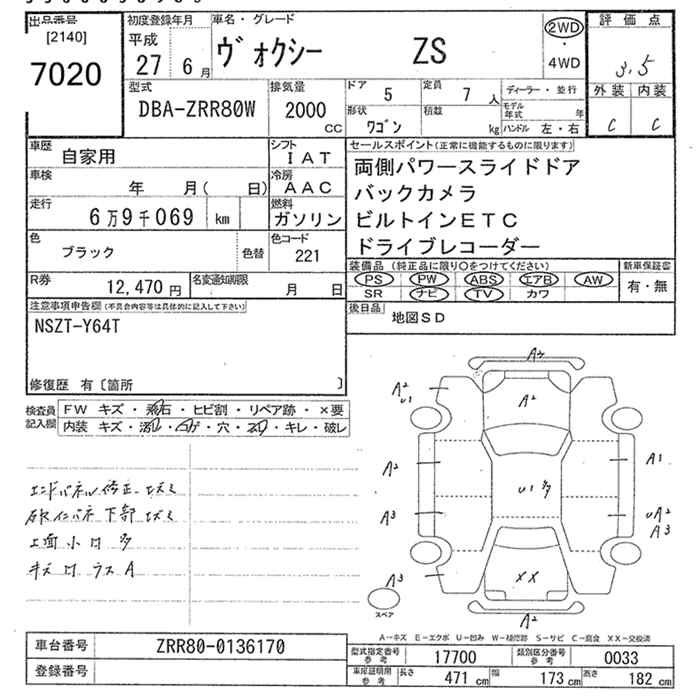 出品番号
[2140]
7020
初度登録年月
平成
27 6 月
車名・グレード
ヴォクシー ZS
2WD
・
4WD
評価点
3.5
外装 内装
C C
型式
DBA-ZRR80W
排気量
2000
CC
ドア 5
定員 7 人
形状 ワゴン
積載 kg
ディーラー・並行
モデル年式 年
ハンドル 左・右
車歴 自家用
シフト IAT
車検 年 月( 日)
冷房 AAC
走行 6万9千069 km
燃料 ガソリン
色 ブラック 色替
色コード 221
R券 12,470 円
名変通知期限 月 日
セールスポイント(正常に機能するものに限ります)
両側パワースライドドア
バックカメラ
ビルトインETC
ドライブレコーダー
装備品(純正品に限り○をつけてください)
PS PW ABS エアB AW
SR ナビ TV カワ
新車保証書
有・無
後日品 地図SD
注意事項申告欄(不具合内容等は具体的に記入して下さい)
NSZT-Y64T
修復歴 有〔箇所 〕
検査員記入欄
FW キズ・飛石・ヒビ割・リペア跡・×要
内装 キズ・汚れ・コゲ・穴・スレ・キレ・破レ
エンドパネル修正エズミ
下部エズミ
上面小凹多
キズ凹ラスA
A2
A2
U1
A2
A2
A1
U1多
A3
UA2
A3
A3
XX
A2
スペア
A-キズ E-エクボ U-凹み W-補修跡 S-サビ C-腐食 XX-交換済
車台番号 ZRR80-0136170
登録番号
型式指定番号 参考 17700
類別区分番号 参考 0033
車庫証明用 参考
長さ 471 cm
幅 173 cm
高さ 182 cm